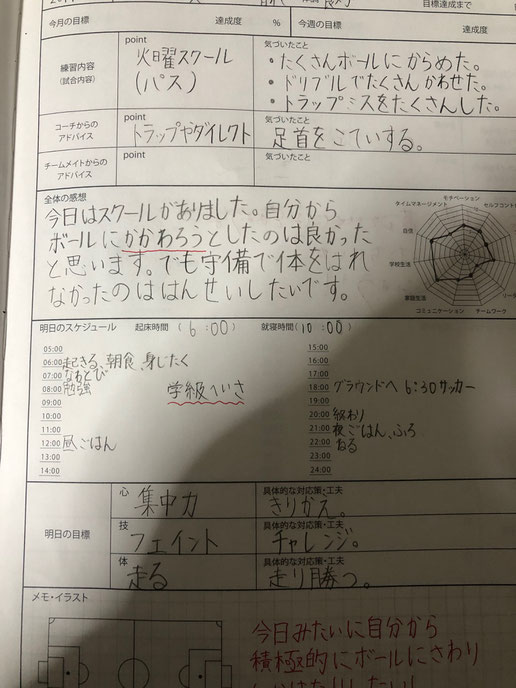 目標達成まで
今月の目標 達成度 % 今週の目標 達成度
練習内容
(試合内容)
point
火曜スクール
(パス)
気づいたこと
・たくさんボールにからめた。
・ドリブルでたくさんかわせた。
・トラップミスをたくさんした。
コーチからの
アドバイス
point
トラップやダイレクト
気づいたこと
足首をこていする。
チームメイトからの
アドバイス
point
気づいたこと
全体の感想
今日はスクールがありました。自分から
ボールにかかわろうとしたのは良かった
と思います。でも守備で体をはれ
なかったのははんせいしたいです。
モチベーション
タイムマネージメント
セルフコント
自信
学校生活
家庭生活
リー
コミュニケーション
チームワーク
明日のスケジュール 起床時間( 6 :00 ) 就寝時間(10 :00 )
05:00
06:00 起きる、朝食、身じたく
07:00 なわとび
08:00 勉強
学級へいさ
09:00
10:00
11:00
12:00 昼ごはん
13:00
14:00
15:00
16:00
17:00
18:00 グラウンドへ 6:30サッカー
19:00
20:00 終わり
21:00 夜ごはん、ふろ
22:00 ねる
23:00
24:00
明日の目標
心
集中力
具体的な対応策・工夫
きりかえ。
技
フェイント
具体的な対応策・工夫
チャレンジ。
体
走る
具体的な対応策・工夫
走り勝つ。
メモ・イラスト
今日みたいに自分から
積極的にボールにさわり